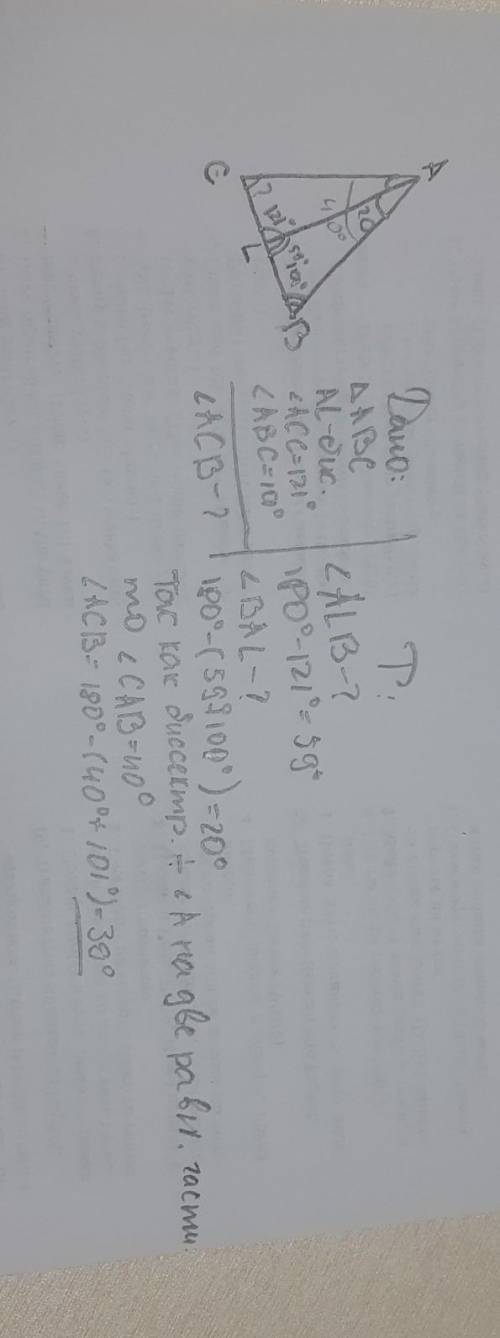 A
20
40°
C
?
121°
L
59°
101°
B
Дано:
△ABC
AL-бис.
∠ACC=121°
∠ABC=101°
∠ACB-?
P:
∠ALB-?
180°-121°=59°
∠BAL-?
180°-(59°+101°)=20°
Так как биссектр. ÷ ∠A на две равн. части
то ∠CAB=40°
∠ACB=180°-(40°+101°)=39°